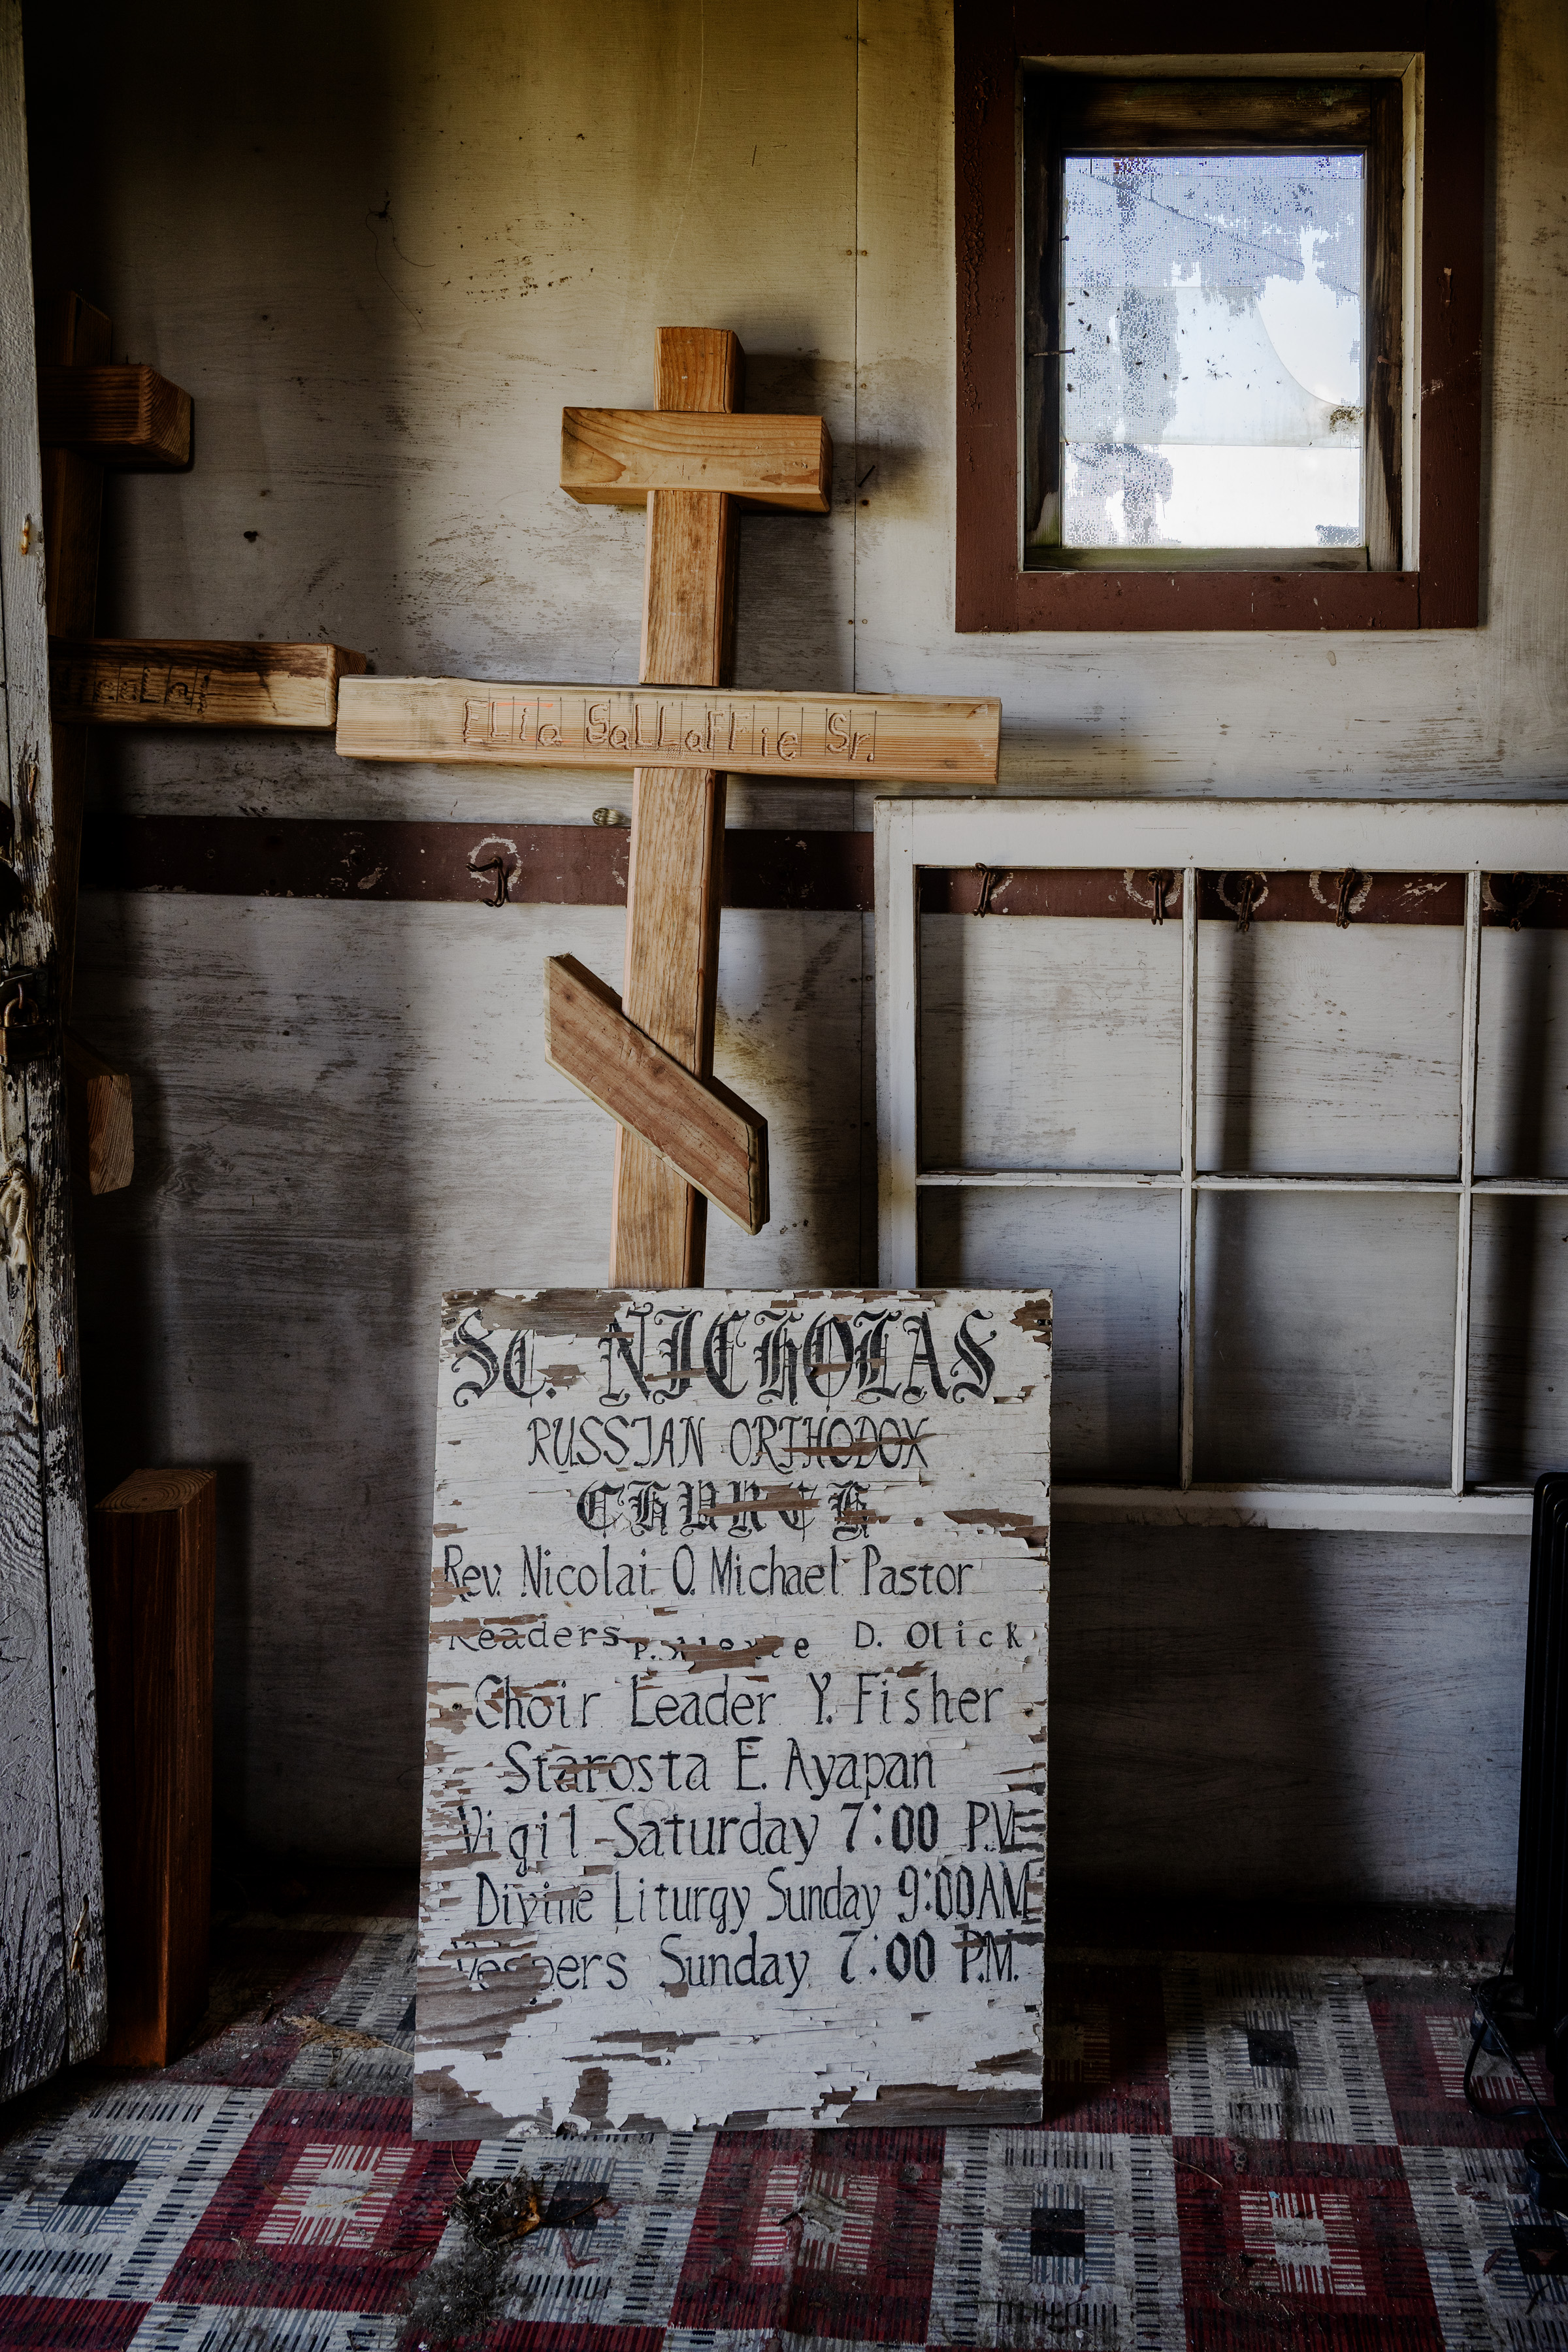 ELia GaLLaFFie Sr.
St. NICHOLAS
RUSSIAN ORTHODOX
CHURCH
Rev. Nicolai O. Michael Pastor
Readers D. Olick
Choir Leader Y. Fisher
Starosta E. Ayapan
Vigil Saturday 7:00 P.M
Divine Liturgy Sunday 9:00AM
Vespers Sunday 7:00 P.M.